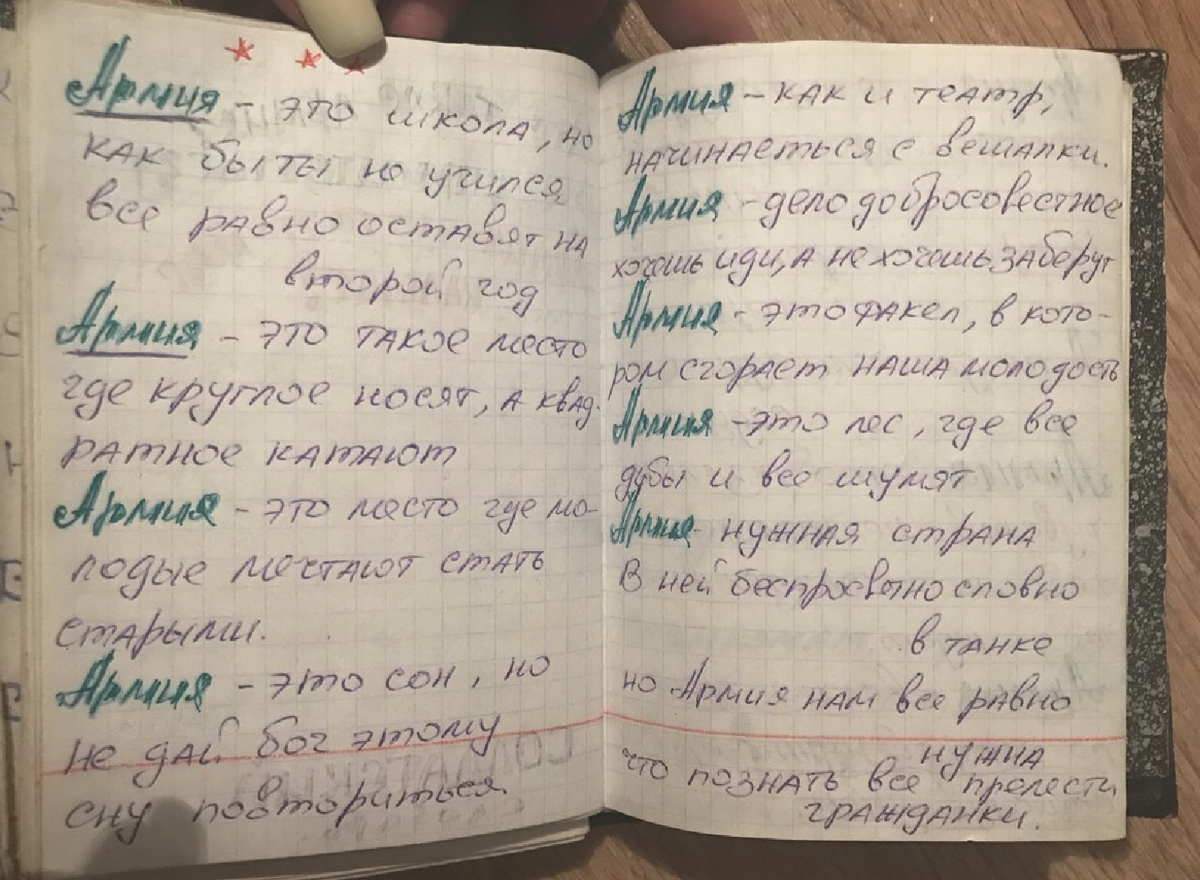 Армия - это школа, но
как бы ты не учился,
все равно оставят на
второй год
Армия - это такое место
где круглое носят, а квад-
ратное катают
Армия - это место где мо-
лодые мечтают стать
старыми.
Армия - это сон, но
не дай бог этому
сну повториться.
Армия - как и театр,
начинаеться с вешалки.
Армия - дело добросовестное
хочешь иди, а не хочешь заберут
Армия - это факел, в кото-
ром сгорает наша молодость
Армия - это лес, где все
дубы и все шумят
Армия - нужная страна
В ней беспросветно словно
в танке
но Армия нам все равно
нужна
что познать все прелести
гражданки.